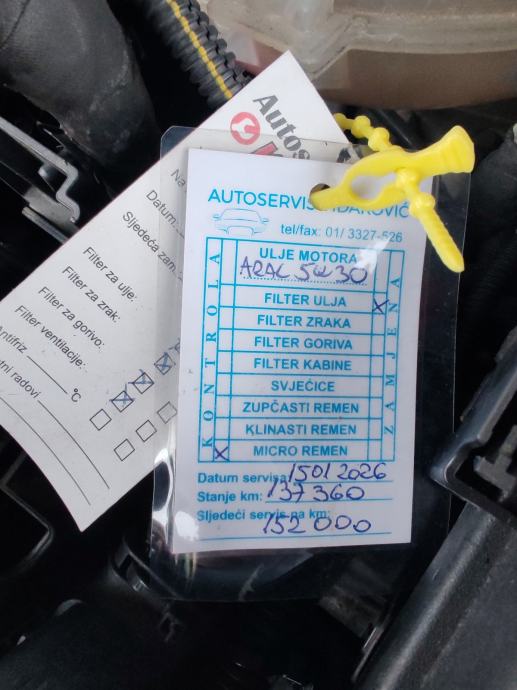 AUTOSERVIS
tel/fax: 01/ 3327-526
KONTROLA
ULJE MOTORA
5W30
FILTER ULJA X
FILTER ZRAKA
FILTER GORIVA
FILTER KABINE
SVJEĆICE
ZUPČASTI REMEN
KLINASTI REMEN
X MICRO REMEN
ZAMJENA
Datum servisa 15012026
Stanje km: 137360
Sljedeći servis na km:
152000
Autos
Na
Datum
Sljedeća zam
Filter za ulje:
Filter za zrak:
Filter za gorivo:
Filter ventilacije:
Antifriz °C
radovi